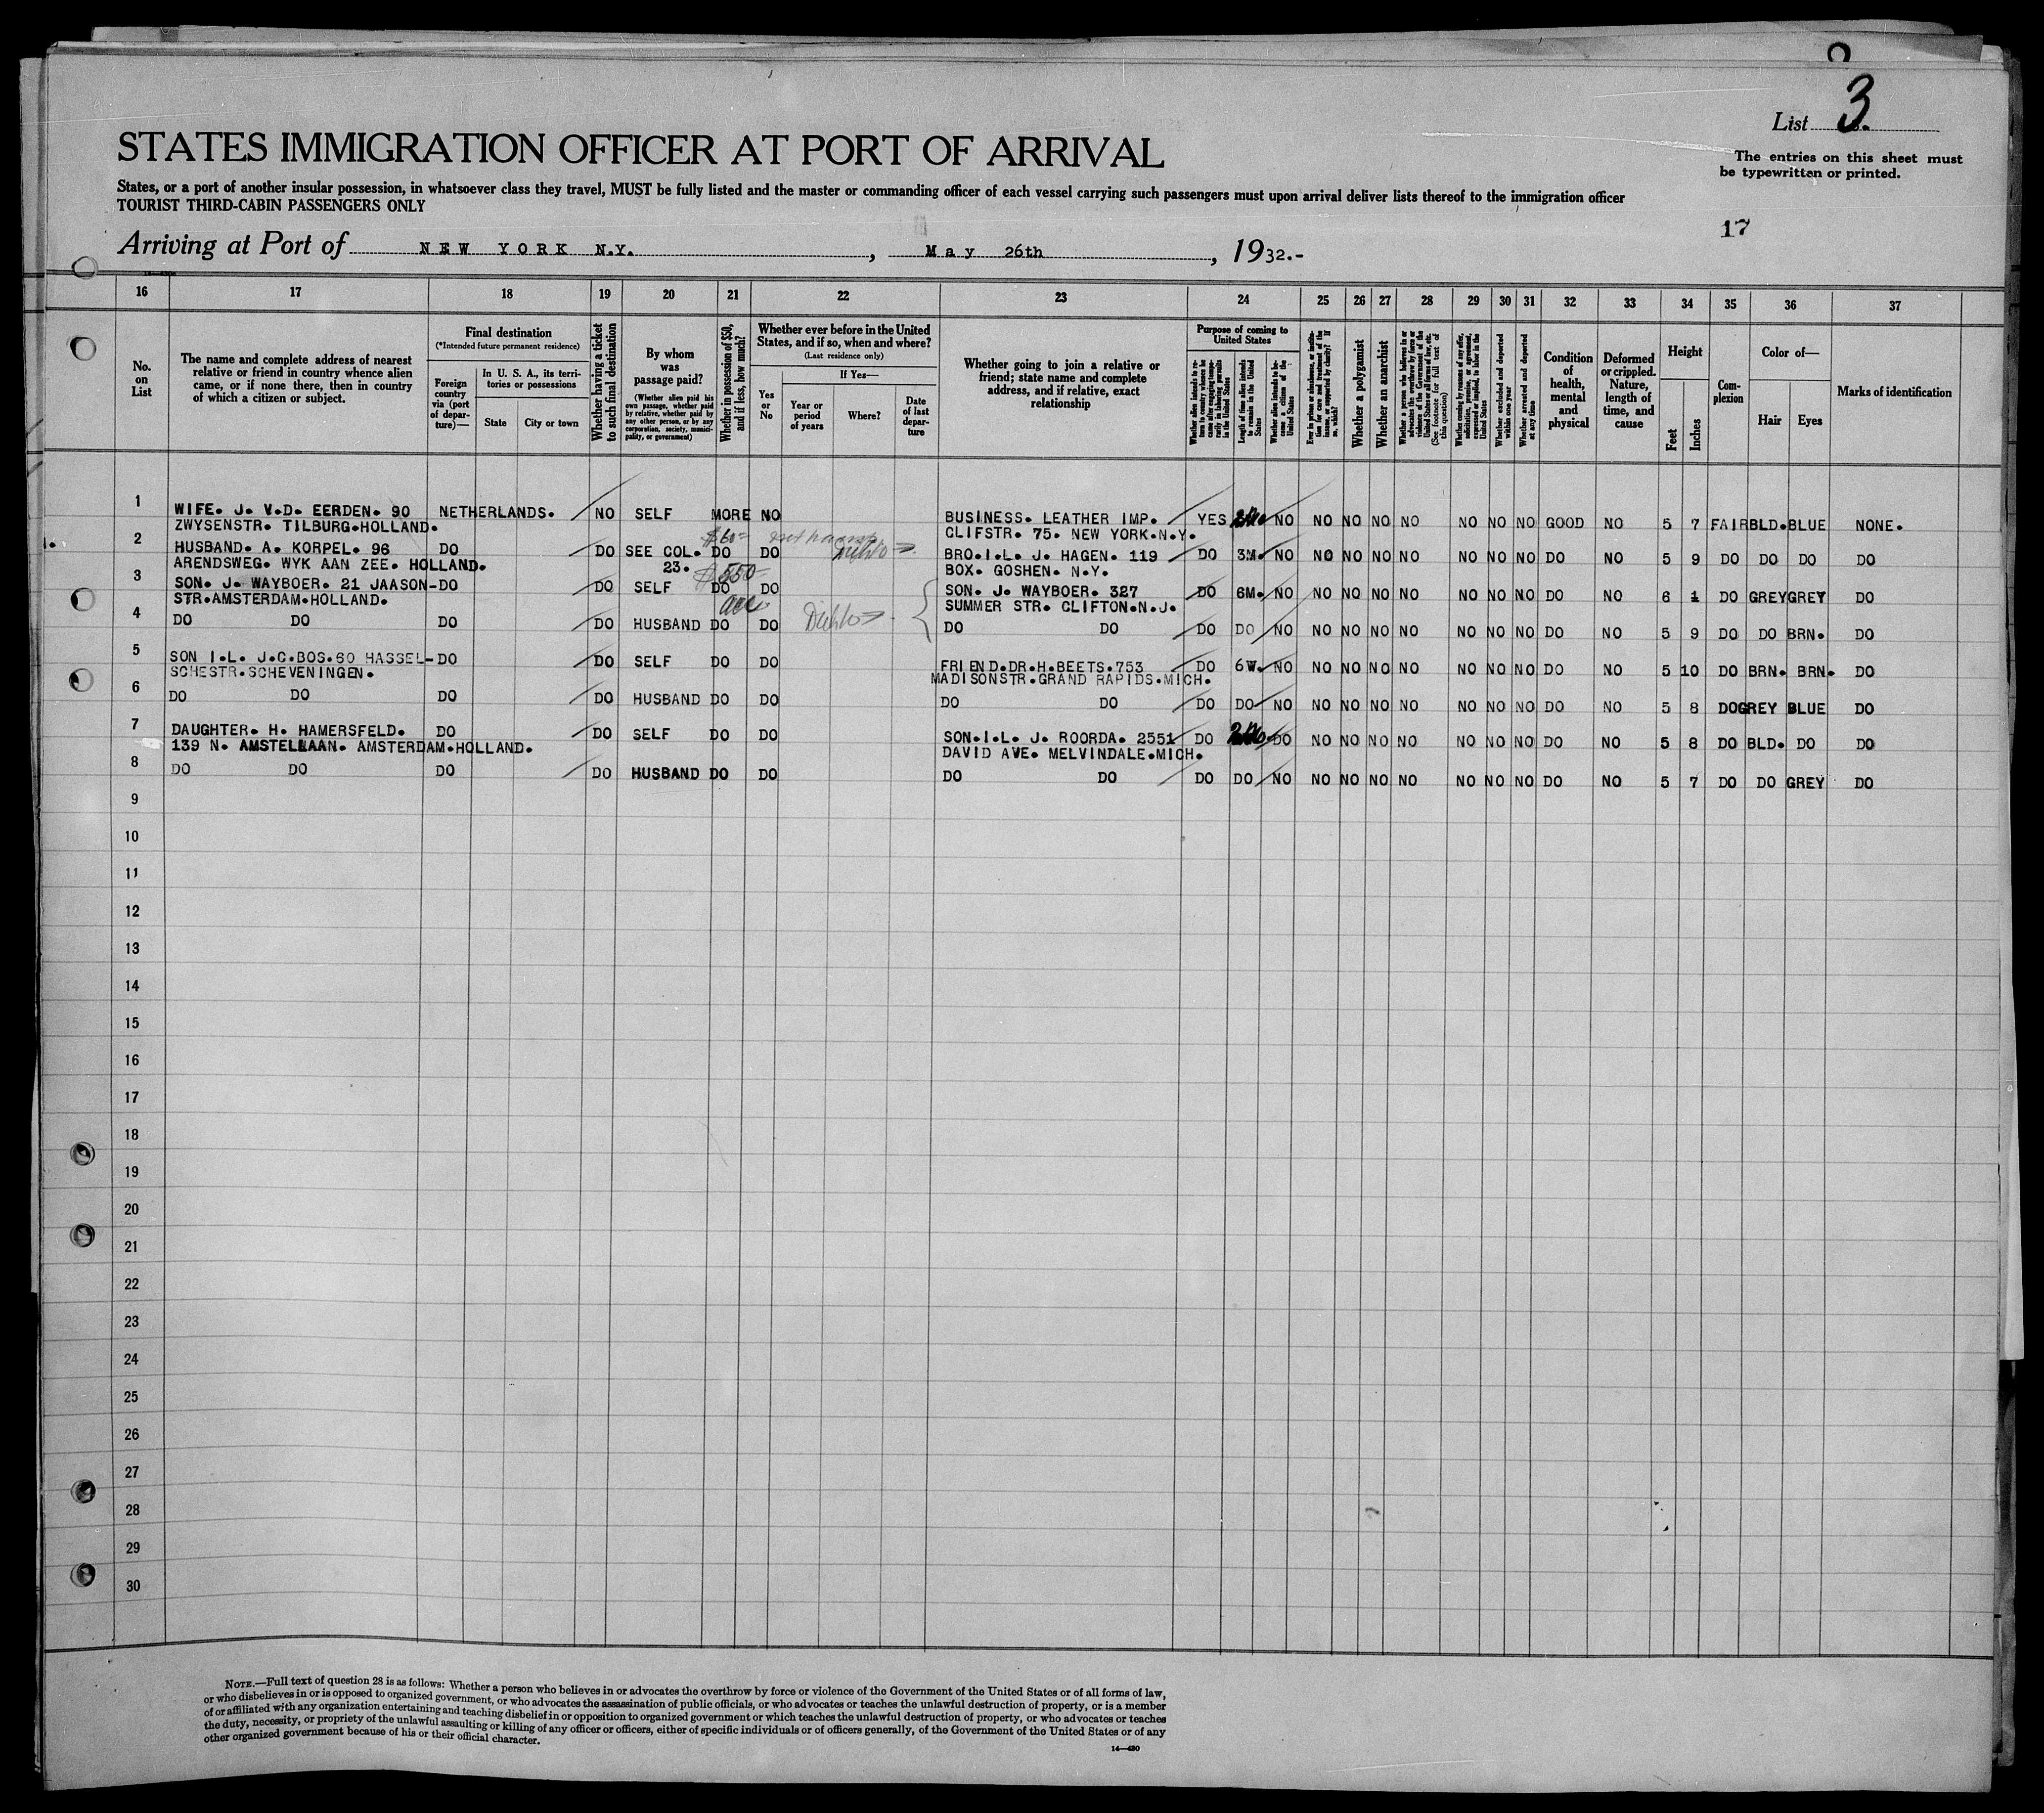 List 3.
STATES IMMIGRATION OFFICER AT PORT OF ARRIVAL
The entries on this sheet must
be typewritten or printed.
States, or a port of another insular possession, in whatsoever class they travel, MUST be fully listed and the master or commanding officer of each vessel carrying such passengers must upon arrival deliver lists thereof to the immigration officer
TOURIST THIRD-CABIN PASSENGERS ONLY
17
Arriving at Port of NEW YORK N.Y. , May 26th , 1932.-
16 17 18 19 20 21 22 23 24 25 26 27 28 29 30 31 32 33 34 35 36 37
No. on List
The name and complete address of nearest relative or friend in country whence alien came, or if none there, then in country of which a citizen or subject.
Final destination
(*Intended future permanent residence)
Foreign country via (port of departure)—
In U. S. A., its territories or possessions
State
City or town
Whether having a ticket to such final destination
By whom was passage paid?
(Whether alien paid his own passage, whether paid by relative, whether paid by any other person, or by any corporation, society, municipality, or government)
Whether in possession of $50, and if less, how much?
Whether ever before in the United States, and if so, when and where?
(Last residence only)
Yes or No
If Yes—
Year or period of years
Where?
Date of last departure
Whether going to join a relative or friend; state name and complete address, and if relative, exact relationship
Purpose of coming to United States
Length of time alien intends to remain in the United States
Whether alien intends to become a citizen of the United States
Whether a polygamist
Whether an anarchist
Whether excluded and deported within one year
Whether arrested and deported at any time
Condition of health, mental and physical
Deformed or crippled. Nature, length of time, and cause
Height
Feet
Inches
Complexion
Color of—
Hair
Eyes
Marks of identification
1 WIFE. J. V.D. EERDEN. 90 NETHERLANDS. NO SELF MORE NO BUSINESS. LEATHER IMP. YES NO NO NO NO NO NO NO NO GOOD NO 5 7 FAIR BLD. BLUE NONE.
ZWYSENSTR. TILBURG.HOLLAND. CLIFSTR. 75. NEW YORK.N.Y.
$60=
2 HUSBAND. A. KORPEL. 96 DO DO SEE COL. DO DO BRO.I.L. J. HAGEN. 119 DO 3M. NO NO NO NO NO NO NO NO DO NO 5 9 DO DO DO DO
ARENDSWEG. WYK AAN ZEE. HOLLAND. 23. BOX. GOSHEN. N.Y.
$550-
3 SON. J. WAYBOER. 21 JAASON- DO DO SELF DO DO SON. J. WAYBOER. 327 DO 6M. NO NO NO NO NO NO NO NO DO NO 6 1 DO GREY GREY DO
STR.AMSTERDAM.HOLLAND. SUMMER STR. CLIFTON.N.J.
4 DO DO DO DO HUSBAND DO DO DO DO DO DO NO NO NO NO NO NO NO NO DO NO 5 9 DO DO BRN. DO
5 SON I.L. J.C.BOS.60 HASSEL- DO DO SELF DO DO FRIEND.DR.H.BEETS.753 DO 6W. NO NO NO NO NO NO NO NO DO NO 5 10 DO BRN. BRN. DO
SCHESTR.SCHEVENINGEN. MADISONSTR.GRAND RAPIDS.MICH.
6 DO DO DO DO HUSBAND DO DO DO DO DO DO NO NO NO NO NO NO NO NO DO NO 5 8 DO GREY BLUE DO
7 DAUGHTER. H. HAMERSFELD. DO DO SELF DO DO SON.I.L. J. ROORDA. 2551 DO DO NO NO NO NO NO NO NO DO NO 5 8 DO BLD. DO DO
139 N. AMSTELLAAN. AMSTERDAM.HOLLAND. DAVID AVE. MELVINDALE.MICH.
8 DO DO DO DO HUSBAND DO DO DO DO DO DO NO NO NO NO NO NO NO NO DO NO 5 7 DO DO GREY DO
9
10
11
12
13
14
15
16
17
18
19
20
21
22
23
24
25
26
27
28
29
30
NOTE.—Full text of question 28 is as follows: Whether a person who believes in or advocates the overthrow by force or violence of the Government of the United States or of all forms of law,
or who disbelieves in or is opposed to organized government, or who advocates the assassination of public officials, or who advocates or teaches the unlawful destruction of property, or is a member
of or affiliated with any organization entertaining and teaching disbelief in or opposition to organized government or which teaches the unlawful destruction of property, or who advocates or teaches
the duty, necessity, or propriety of the unlawful assaulting or killing of any officer or officers, either of specific individuals or of officers generally, of the Government of the United States or of any
other organized government because of his or their official character.
14—430